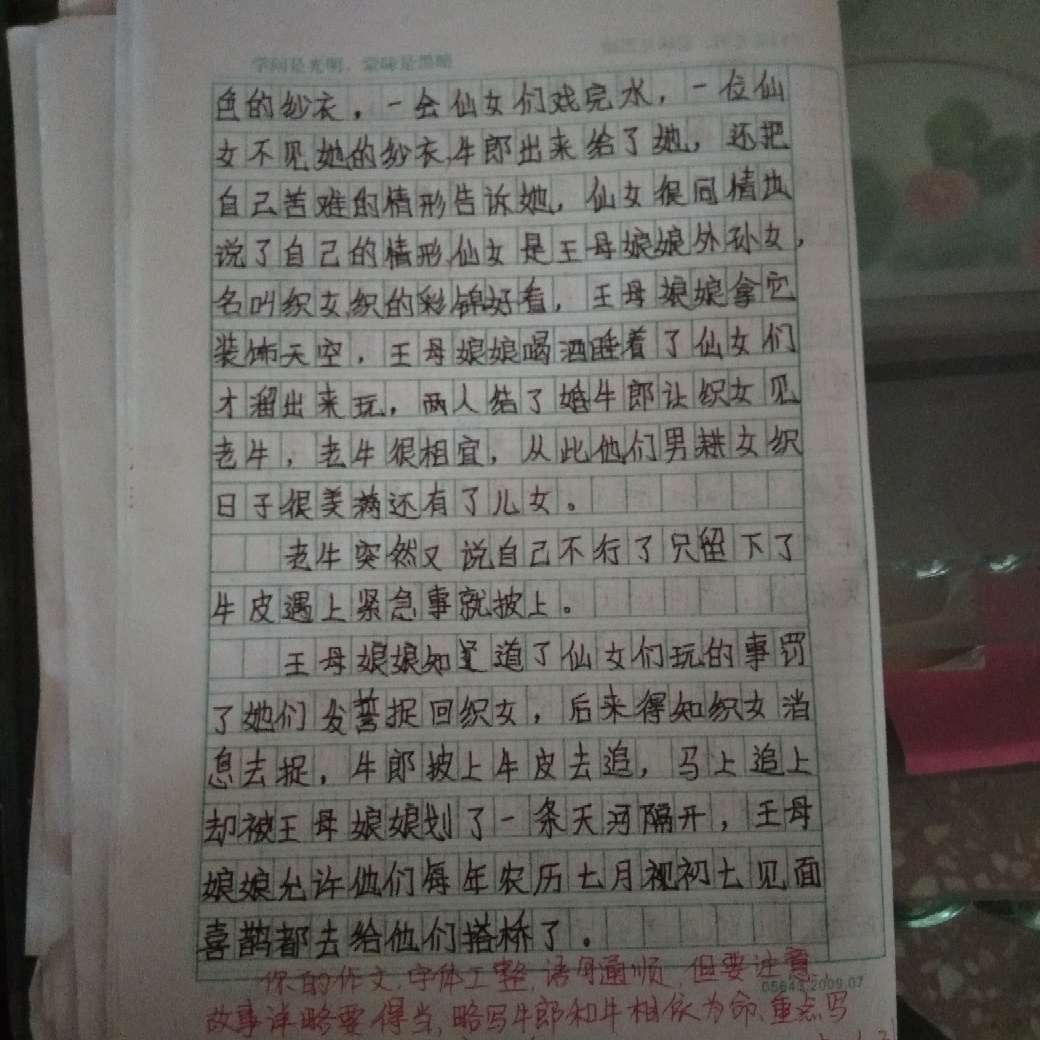 学问是光明，蒙昧是黑暗
色的纱衣，一会仙女们戏完水，一位仙
女不见她的纱衣,牛郎出来给了她，还把
自己苦难的情形告诉她，仙女很同情也
说了自己的情形,仙女是王母娘娘外孙女，
名叫织女,织的彩锦好看，王母娘娘拿它
装饰天空，王母娘娘喝酒睡着了仙女们
才溜出来玩，两人结了婚牛郎让织女见
老牛，老牛很相宜，从此他们男耕女织
日子很美满还有了儿女。
老牛突然又说自己不行了只留下了
牛皮遇上紧急事就披上。
王母娘娘知道了仙女们玩的事罚
了她们发誓捉回织女，后来得知织女消
息去捉，牛郎披上牛皮去追，马上追上
却被王母娘娘划了一条天河隔开，王母
娘娘允许他们每年农历七月初七见面
喜鹊都去给他们搭桥了。
05643 2009.07
你的作文,字体工整,语句通顺,但要注意
故事详略要得当,略写牛郎和牛相依为命,重点写